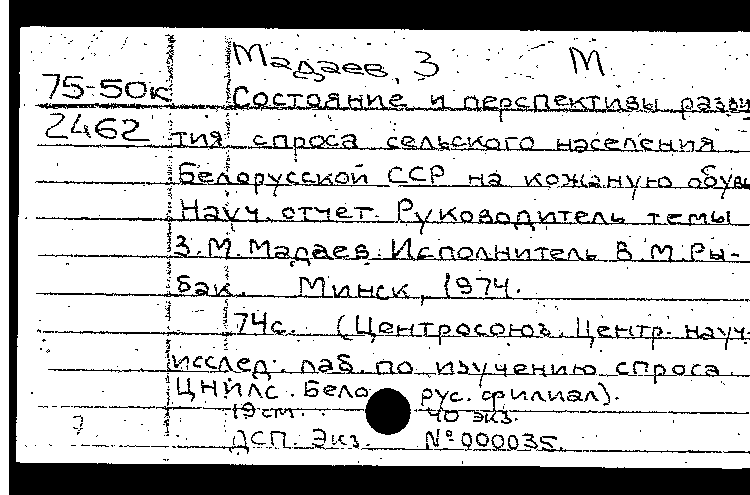 Мадаев, З М
75-50к Состояние и перспективы разви
2462 тия спроса сельского населения
Белорусской ССР на кожаную обувь
Науч. отчет. Руководитель темы
З.М. Мадаев. Исполнитель В.М. Ры-
бак. Минск, 1974.
74с. (Центросоюз. Центр. науч.-
исслед. лаб. по изучению спроса
ЦНИЛС. Бело рус. филиал).
19 см. 40 экз.
ДСП. Экз. № 000035.